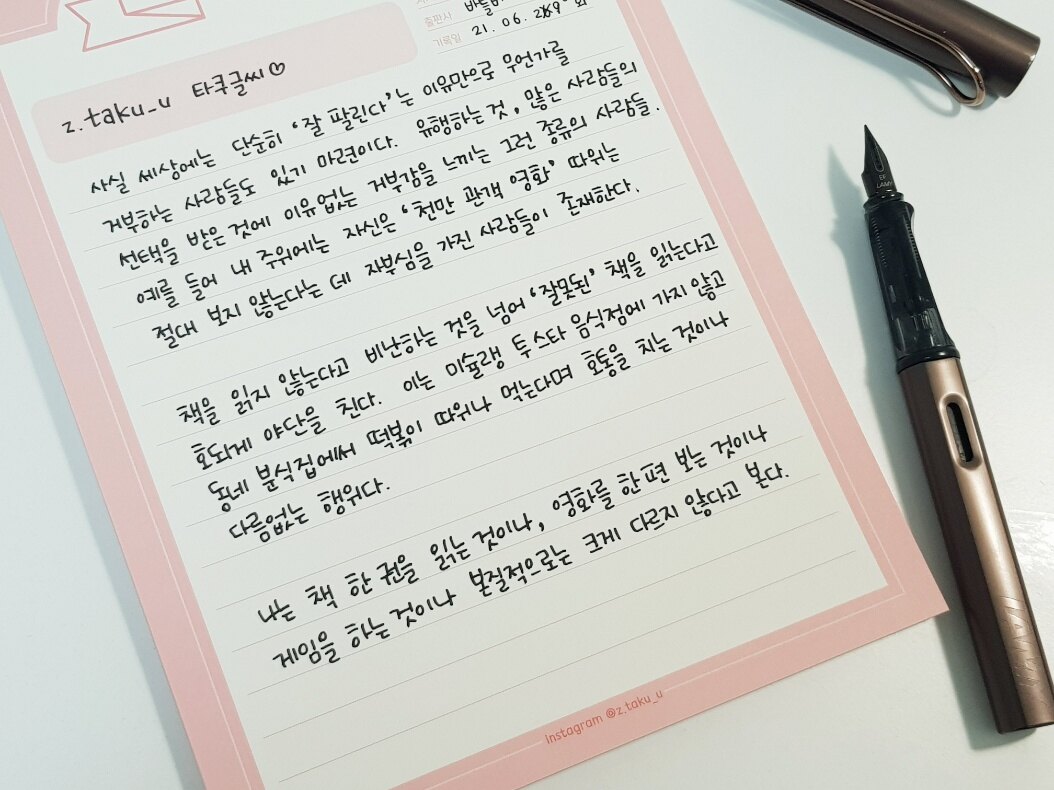 출판사
기록일 21. 06.
z.taku_u 타쿠글씨♡
사실 세상에는 단순히 '잘 팔린다'는 이유만으로 무언가를
거부하는 사람들도 있기 마련이다. 유행하는 것, 많은 사람들의
선택을 받은 것에 이유없는 거부감을 느끼는 그런 종류의 사람들.
예를 들어 내 주위에는 자신은 '천만 관객 영화' 따위는
절대 보지 않는다는 데 자부심을 가진 사람들이 존재한다.
책을 읽지 않는다고 비난하는 것을 넘어 '잘못된' 책을 읽는다고
호되게 야단을 친다. 이는 미슐랭 투스타 음식점에 가지 않고
동네 분식집에서 떡볶이 따위나 먹는다며 호통을 치는 것이나
다름없는 행위다.
나는 책 한 권을 읽는 것이나, 영화를 한 편 보는 것이나
게임을 하는 것이나 본질적으로는 크게 다르지 않다고 본다.
Instagram @z.taku_u
EF
LAMY
LAMY